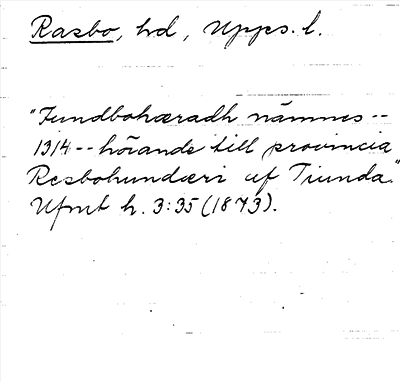 Rasbo, hd, Upps. l.
"Fundbohæradh nämnes --
1314 -- hörande till provincia
Resbohundæri af Tiunda."
Ufmt h. 3:35 (1873).